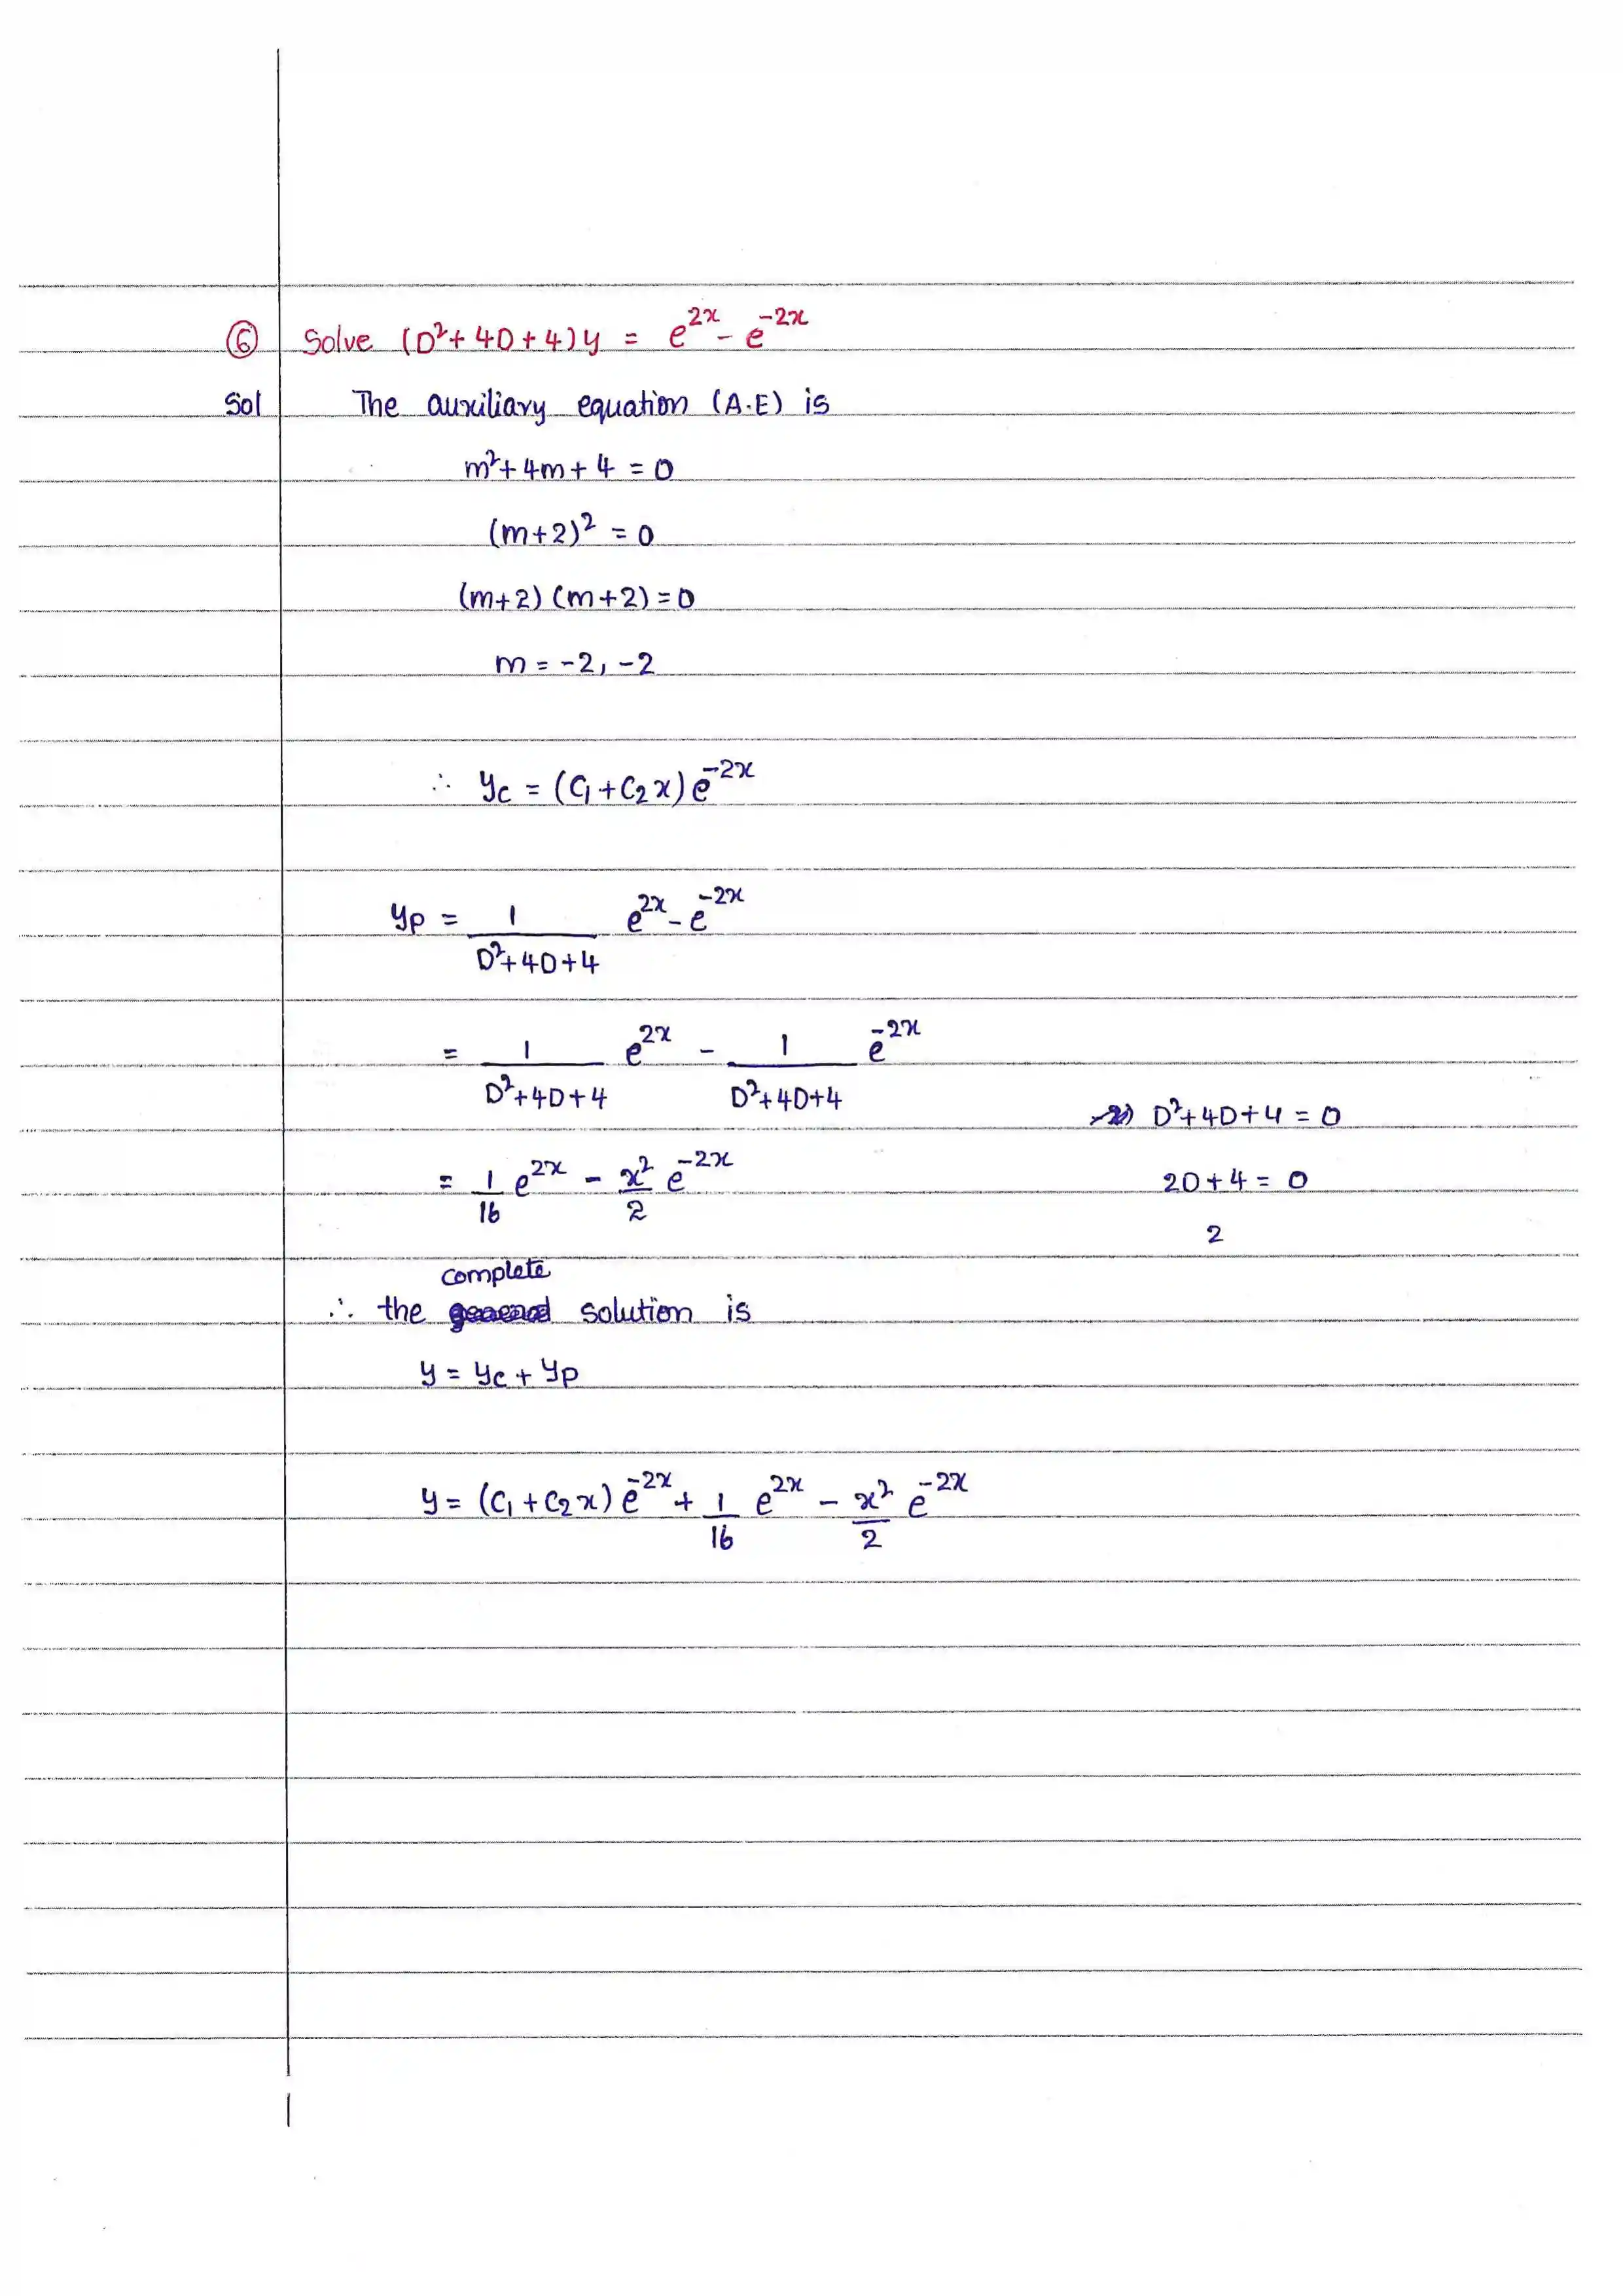 ⑥ Solve (D²+ 4D + 4) y = e^{2x} - e^{-2x}
Sol The auxiliary equation (A.E) is
m²+ 4m + 4 = 0
(m+2)² = 0
(m+2) (m+2) = 0
m = -2, -2
∴ y_c = (C₁ + C₂ x) e^{-2x}
y_p = 1/(D²+ 4D + 4) e^{2x} - e^{-2x}
= 1/(D²+4D+4) e^{2x} - 1/(D²+4D+4) e^{-2x}
D²+ 4D + 4 = 0
= 1/16 e^{2x} - x²/2 e^{-2x}
2D + 4 = 0
2
complete
∴ the solution is
y = y_c + y_p
y = (C₁ + C₂ x) e^{-2x} + 1/16 e^{2x} - x²/2 e^{-2x}